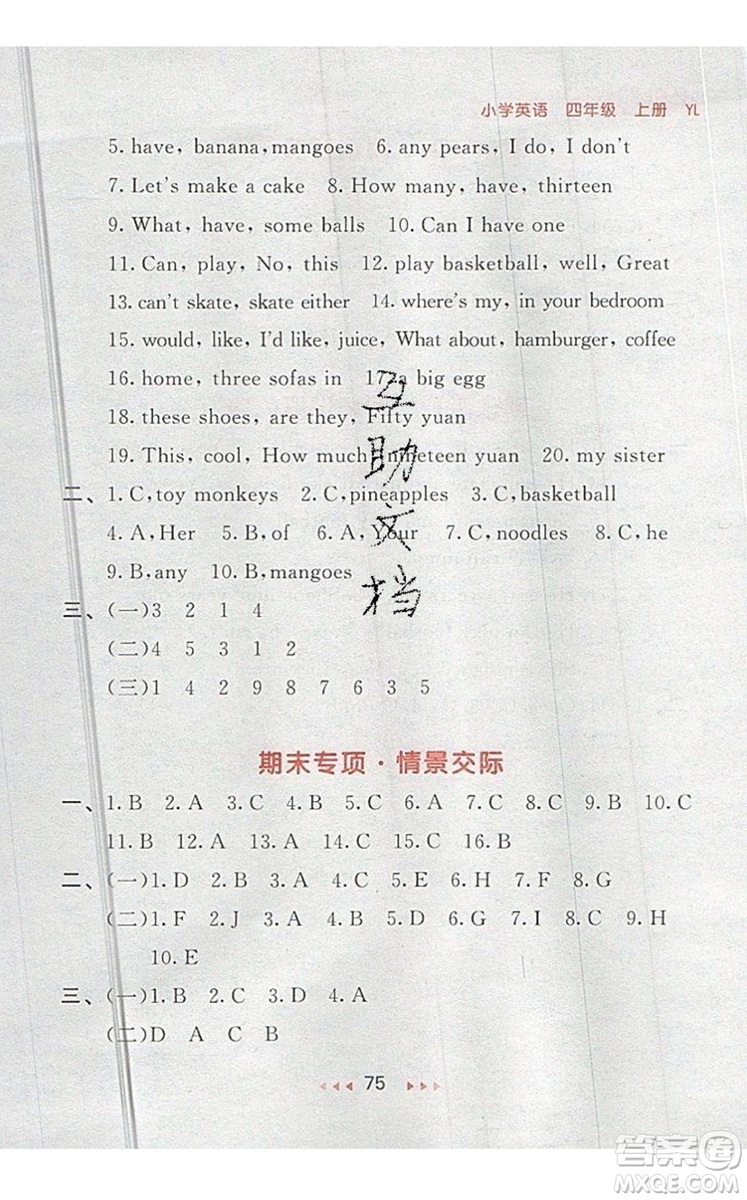 小学英语 四年级 上册 YL
5. have, banana, mangoes 6. any pears, I do, I don't
7. Let's make a cake 8. How many, have, thirteen
9. What, have, some balls 10. Can I have one
11. Can, play, No, this 12. play basketball, well, Great
13. can't skate, skate either 14. where's my, in your bedroom
15. would, like, I'd like, juice, What about, hamburger, coffee
16. home, three sofas in 17. a big egg
18. these shoes, are they, Fifty yuan
19. This, cool, How much, nineteen yuan 20. my sister
二、1. C, toy monkeys 2. C, pineapples 3. C, basketball
4. A, Her 5. B, of 6. A, Your 7. C, noodles 8. C, he
9. B, any 10. B, mangoes
三、(一)3 2 1 4
(二)4 5 3 1 2
(三)1 4 2 9 8 7 6 3 5
互助文档
期末专项·情景交际
一、1. B 2. A 3. C 4. C 5. B 6. A 7. C 8. B 9. B 10. C
11. B 12. A 13. A 14. C 15. C 16. B
二、(一)1. D 2. B 3. C 4. A 5. E 6. H 7. F 8. G
(二)1. F 2. J 3. A 4. B 5. D 6. G 7. I 8. C 9. H
10. E
三、(一)1. B 2. C 3. D 4. A
(二)D A C B
75
答案圈
MXQE.COM